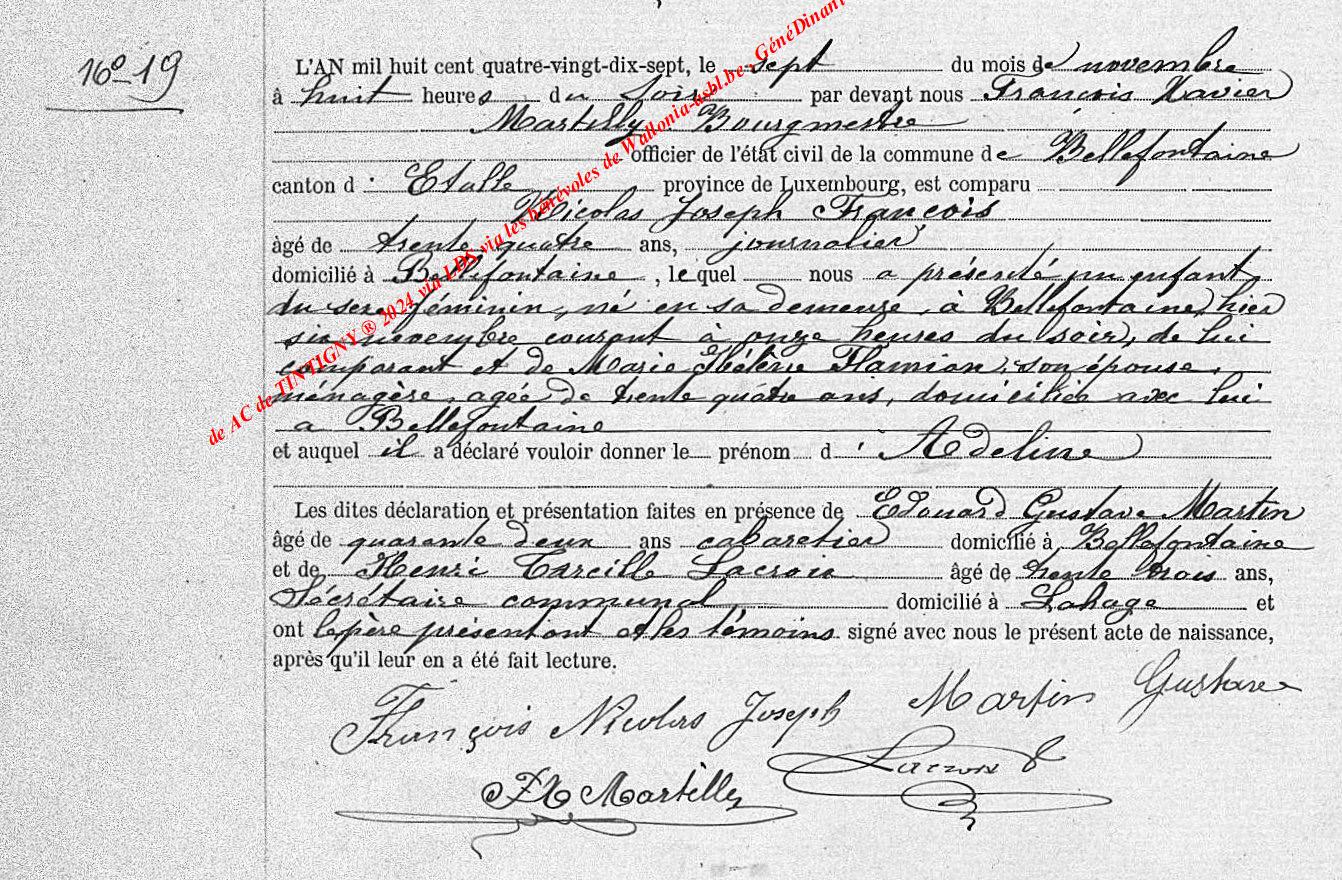 No 19
L'AN mil huit cent quatre-vingt-dix-sept, le sept du mois de novembre
à huit heures du soir par devant nous François Xavier
Martilly Bourgmestre
officier de l'état civil de la commune de Bellefontaine
canton d' Etalle province de Luxembourg, est comparu
Nicolas Joseph François
âgé de trente quatre ans, journalier
domicilié à Bellefontaine, lequel nous a présenté un enfant
du sexe féminin, né en sa demeure, à Bellefontaine, hier
six novembre courant à onze heures du soir, de lui
comparant et de Marie Hélène Flamion, son épouse,
ménagère, agée de trente quatre ans, domiciliée avec lui
a Bellefontaine
et auquel il a déclaré vouloir donner le prénom d' Adeline
Les dites déclaration et présentation faites en présence de Edouard Gustave Martin
âgé de quarante deux ans cabaretier domicilié à Bellefontaine
et de Henri Tarcille Lacroix âgé de trente trois ans,
Sécrétaire communal, domicilié à Lahage et
ont le père présentant et les témoins signé avec nous le présent acte de naissance,
après qu'il leur en a été fait lecture.
François Nicolas Joseph Martin Gustave
FX Martilly Lacroix
de AC de TINTIGNY ® 2024 via LDS via les bénévoles de Wallonia-asbl.be - GénéDinant